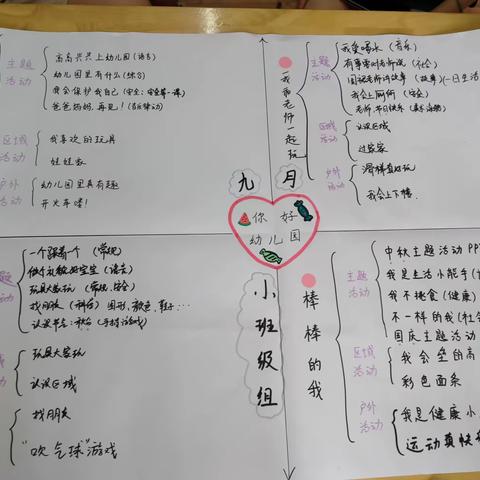 主题活动
高高兴兴上幼儿园(语言)
幼儿园里有什么(综合)
我会保护我自己(安全:安全第一课)
爸爸妈妈,再见!(音乐律动)
区域活动
我喜欢的玩具
娃娃家
户外活动
幼儿园里真有趣
开火车喽!
我和老师一起玩
主题活动
我爱喝水(音乐)
有事要对老师说(社会)
围听老师讲故事(故事)(一日生活
我会上厕所(安全)
老师,节日快乐
区域活动
认识区域
过家家
户外活动
滑梯真好玩
我会上下楼
九月
你好
幼儿园
小班级组
一个跟着一个(常规)
做个礼貌好宝宝(语言)
玩具大家玩(常规、社会)
找朋友(科学)图形、颜色、鞋子...
玩具大家玩
认识区域
找朋友
"吹气球"游戏
棒棒的我
主题活动
中秋主题活动PP
我是生活小能手(
我不挑食(健康)
不一样的我(社会
国庆主题活动
区域活动
我会垒的高
彩色面条
户外活动
我是健康小
运动真快